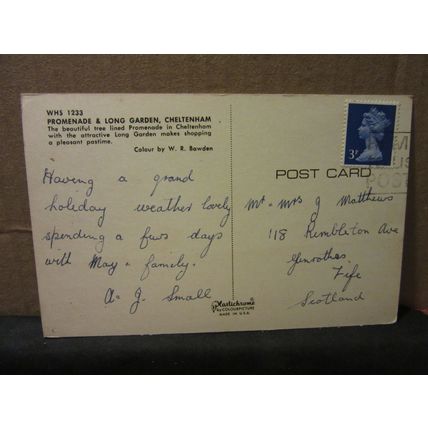 WHS 1233
PROMENADE & LONG GARDEN, CHELTENHAM
The beautiful tree lined Promenade in Cheltenham
with the attractive Long Garden makes shopping
a pleasant pastime.
Colour by W. R. Bawden
Having a grand
holiday weather lovely
spending a fuws days
with May & family.
A & J. Small
Plastichrome
by COLOURPICTURE
MADE IN U.S.A.
POST CARD
3P
POST
Mr & mrs J Matthews
118 Rimbleton Ave
Glenrothes
Fife
Scotland